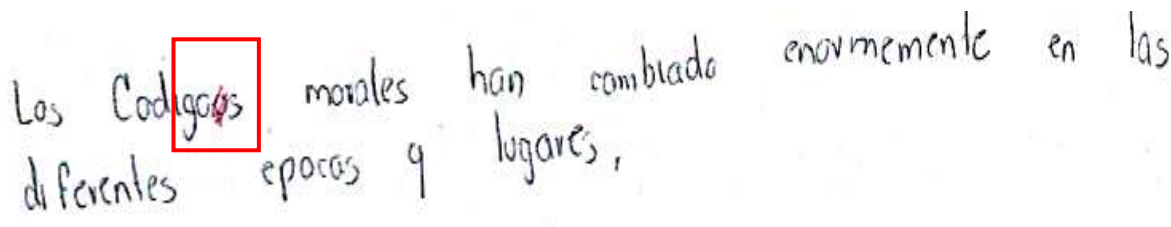 Los Codigos morales han cambiado enormemente en las
diferentes epocas y lugares,